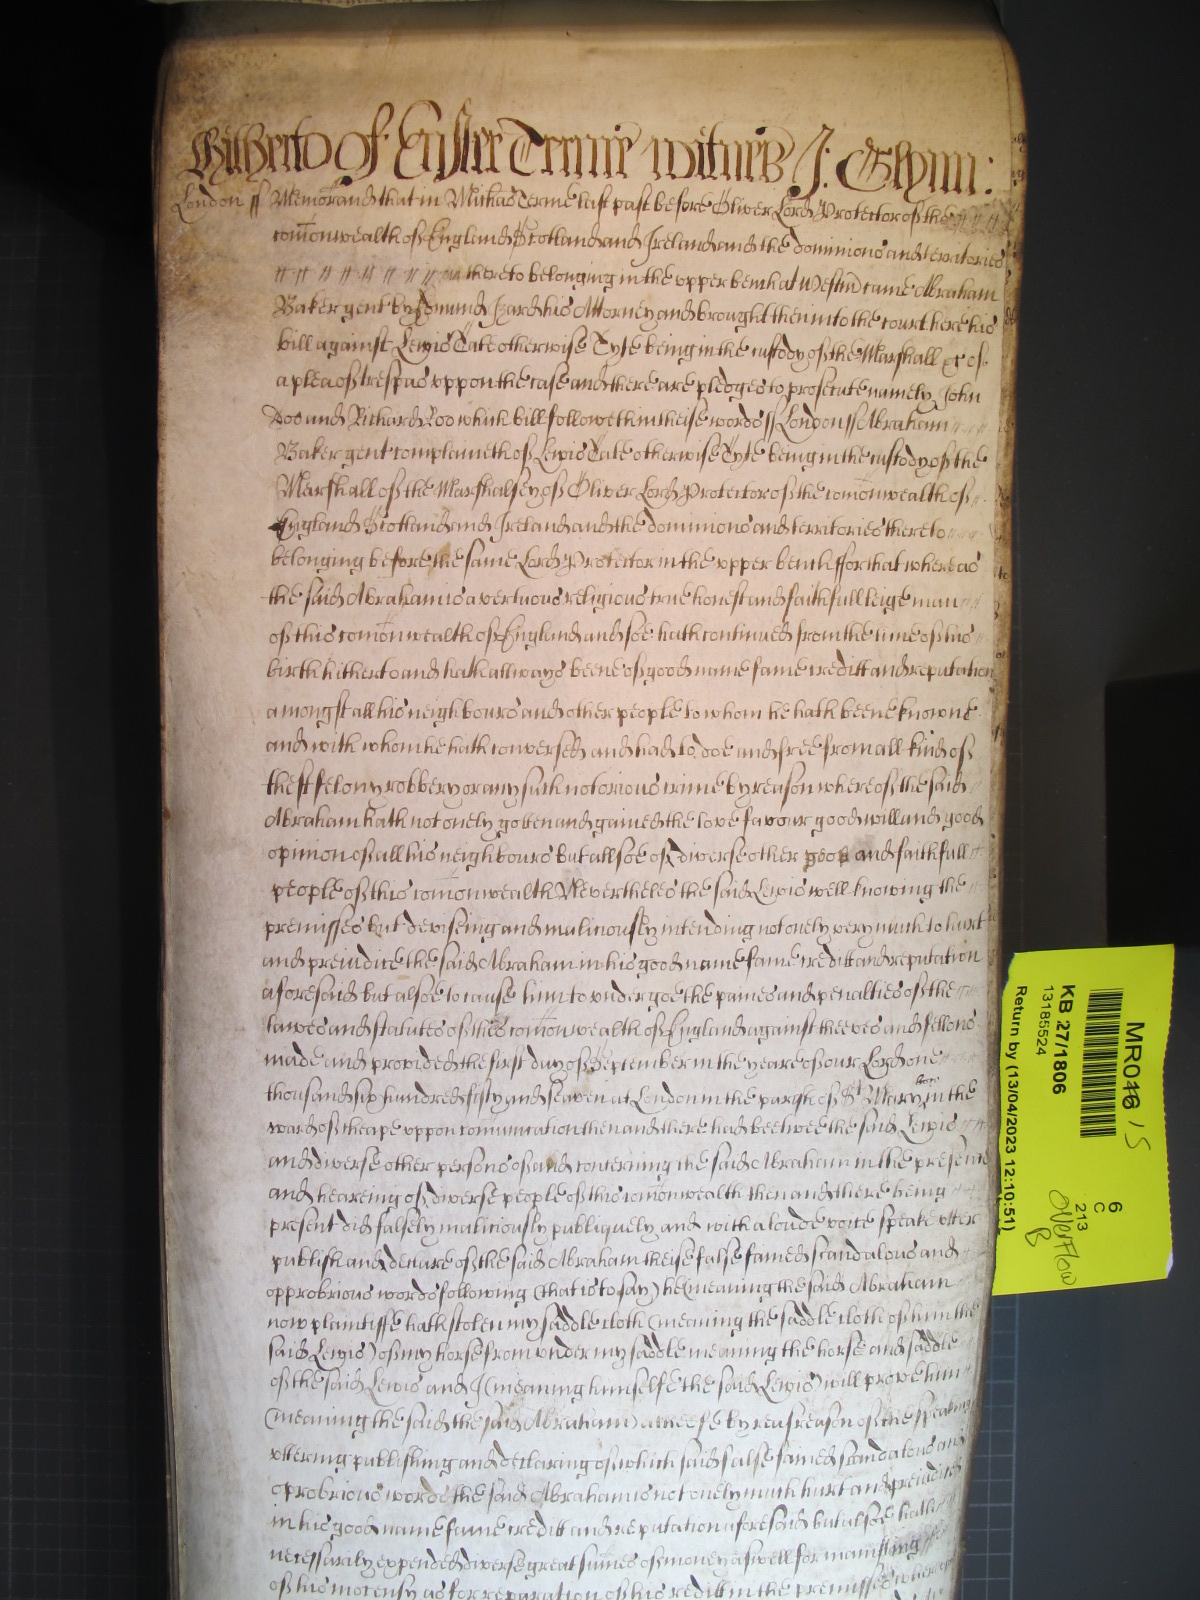 Hitherto of Easter Terme witnes J: Glynn:
London ss Memorand that in Michas Terme last past before Oliver Lord Protector of the
comonwealth of England Scotland and Ireland and the dominions and territories
thereto belonging in the upper bench at Westm came Abraham
Baker gent by Edmund Izard his Attorney and brought then into the court here his
bill against Lewis Tate otherwise Tyte being in the custody of the Marshall &c of
a plea of trespas uppon the case and there are pledges to prosecute namely John
Doo and Richard Roo which bill followeth in theise words ss London ss Abraham
Baker gent complaineth of Lewis Tate otherwise Tyte being in the custody of the
Marshall of the Marshalsey of Oliver Lord Protector of the comonwealth of
England Scotland and Ireland and the dominions and territories thereto
belonging before the same Lord Protector in the upper bench for that whereas
the said Abraham is a vertuous religious true honest and faithfull leige man
of this comonwealth of England and soe hath continued from the time of his
birth hitherto and hath allways beene of good name fame creditt and reputation
amongst all his neighbours and other people to whom he hath beene knowne
and with whom he hath conversed and had to doe and free from all kind of
theft felony robbery or any such notorious crime by reason whereof the said
Abraham hath not onely gotten and gained the love favour good will and good
opinion of all his neighbours but allsoe of diverse other good and faithfull
people of this comonwealth Nevertheles the said Lewis well knowing the
premisses but deviseing and maliciously intending not onely very much to hurt
and preiudice the said Abraham in his good name fame creditt and reputation
aforesaid but alsoe to cause him to undergoe the paines and penalties of the
lawes and statutes of this comonwealth of England against theeves and fellons
made and provided the first day of September in the yeare of our Lord one
thousand six hundred fifty and seaven at London in the parish of St Mary bow in the
ward of cheape uppon comunication then and there had beetwee the said Lewis
and diverse other persons of and concerning the said Abraham in the presence
and heareing of diverse people of this comonwealth then and there being
present did falsely maliciously publiquely and with a loude voice speake utter
publish and declare of the said Abraham theise false fained scandalous and
opprobrious words following (that is to say) he (meaning the said Abraham
now plaintiffe hath stolen my saddle cloth (meaning the saddle cloth of him the
said Lewis) of my horse from under my saddle meaning the horse and saddle
of the said Lewis and I (meaning himselfe the said Lewis) will prove him
(meaning the said the said Abraham) a theefe by reas reason of the speaking
uttering publishing and declaring of which said false fained scandalous and
oprobrious words the said Abraham is not onely much hurt and preiudiced
in his good name fame creditt and reputation aforesaid but alsoe hath
necessarily expended diverse great sumes of money aswell for manifesting
of his inocensy as for reparation of his creditt in the premisses whereof
MR016 15
KB 27/1806
13185524
Return by (13/04/2023 12:10:51)
6
C
213
Overflow
B